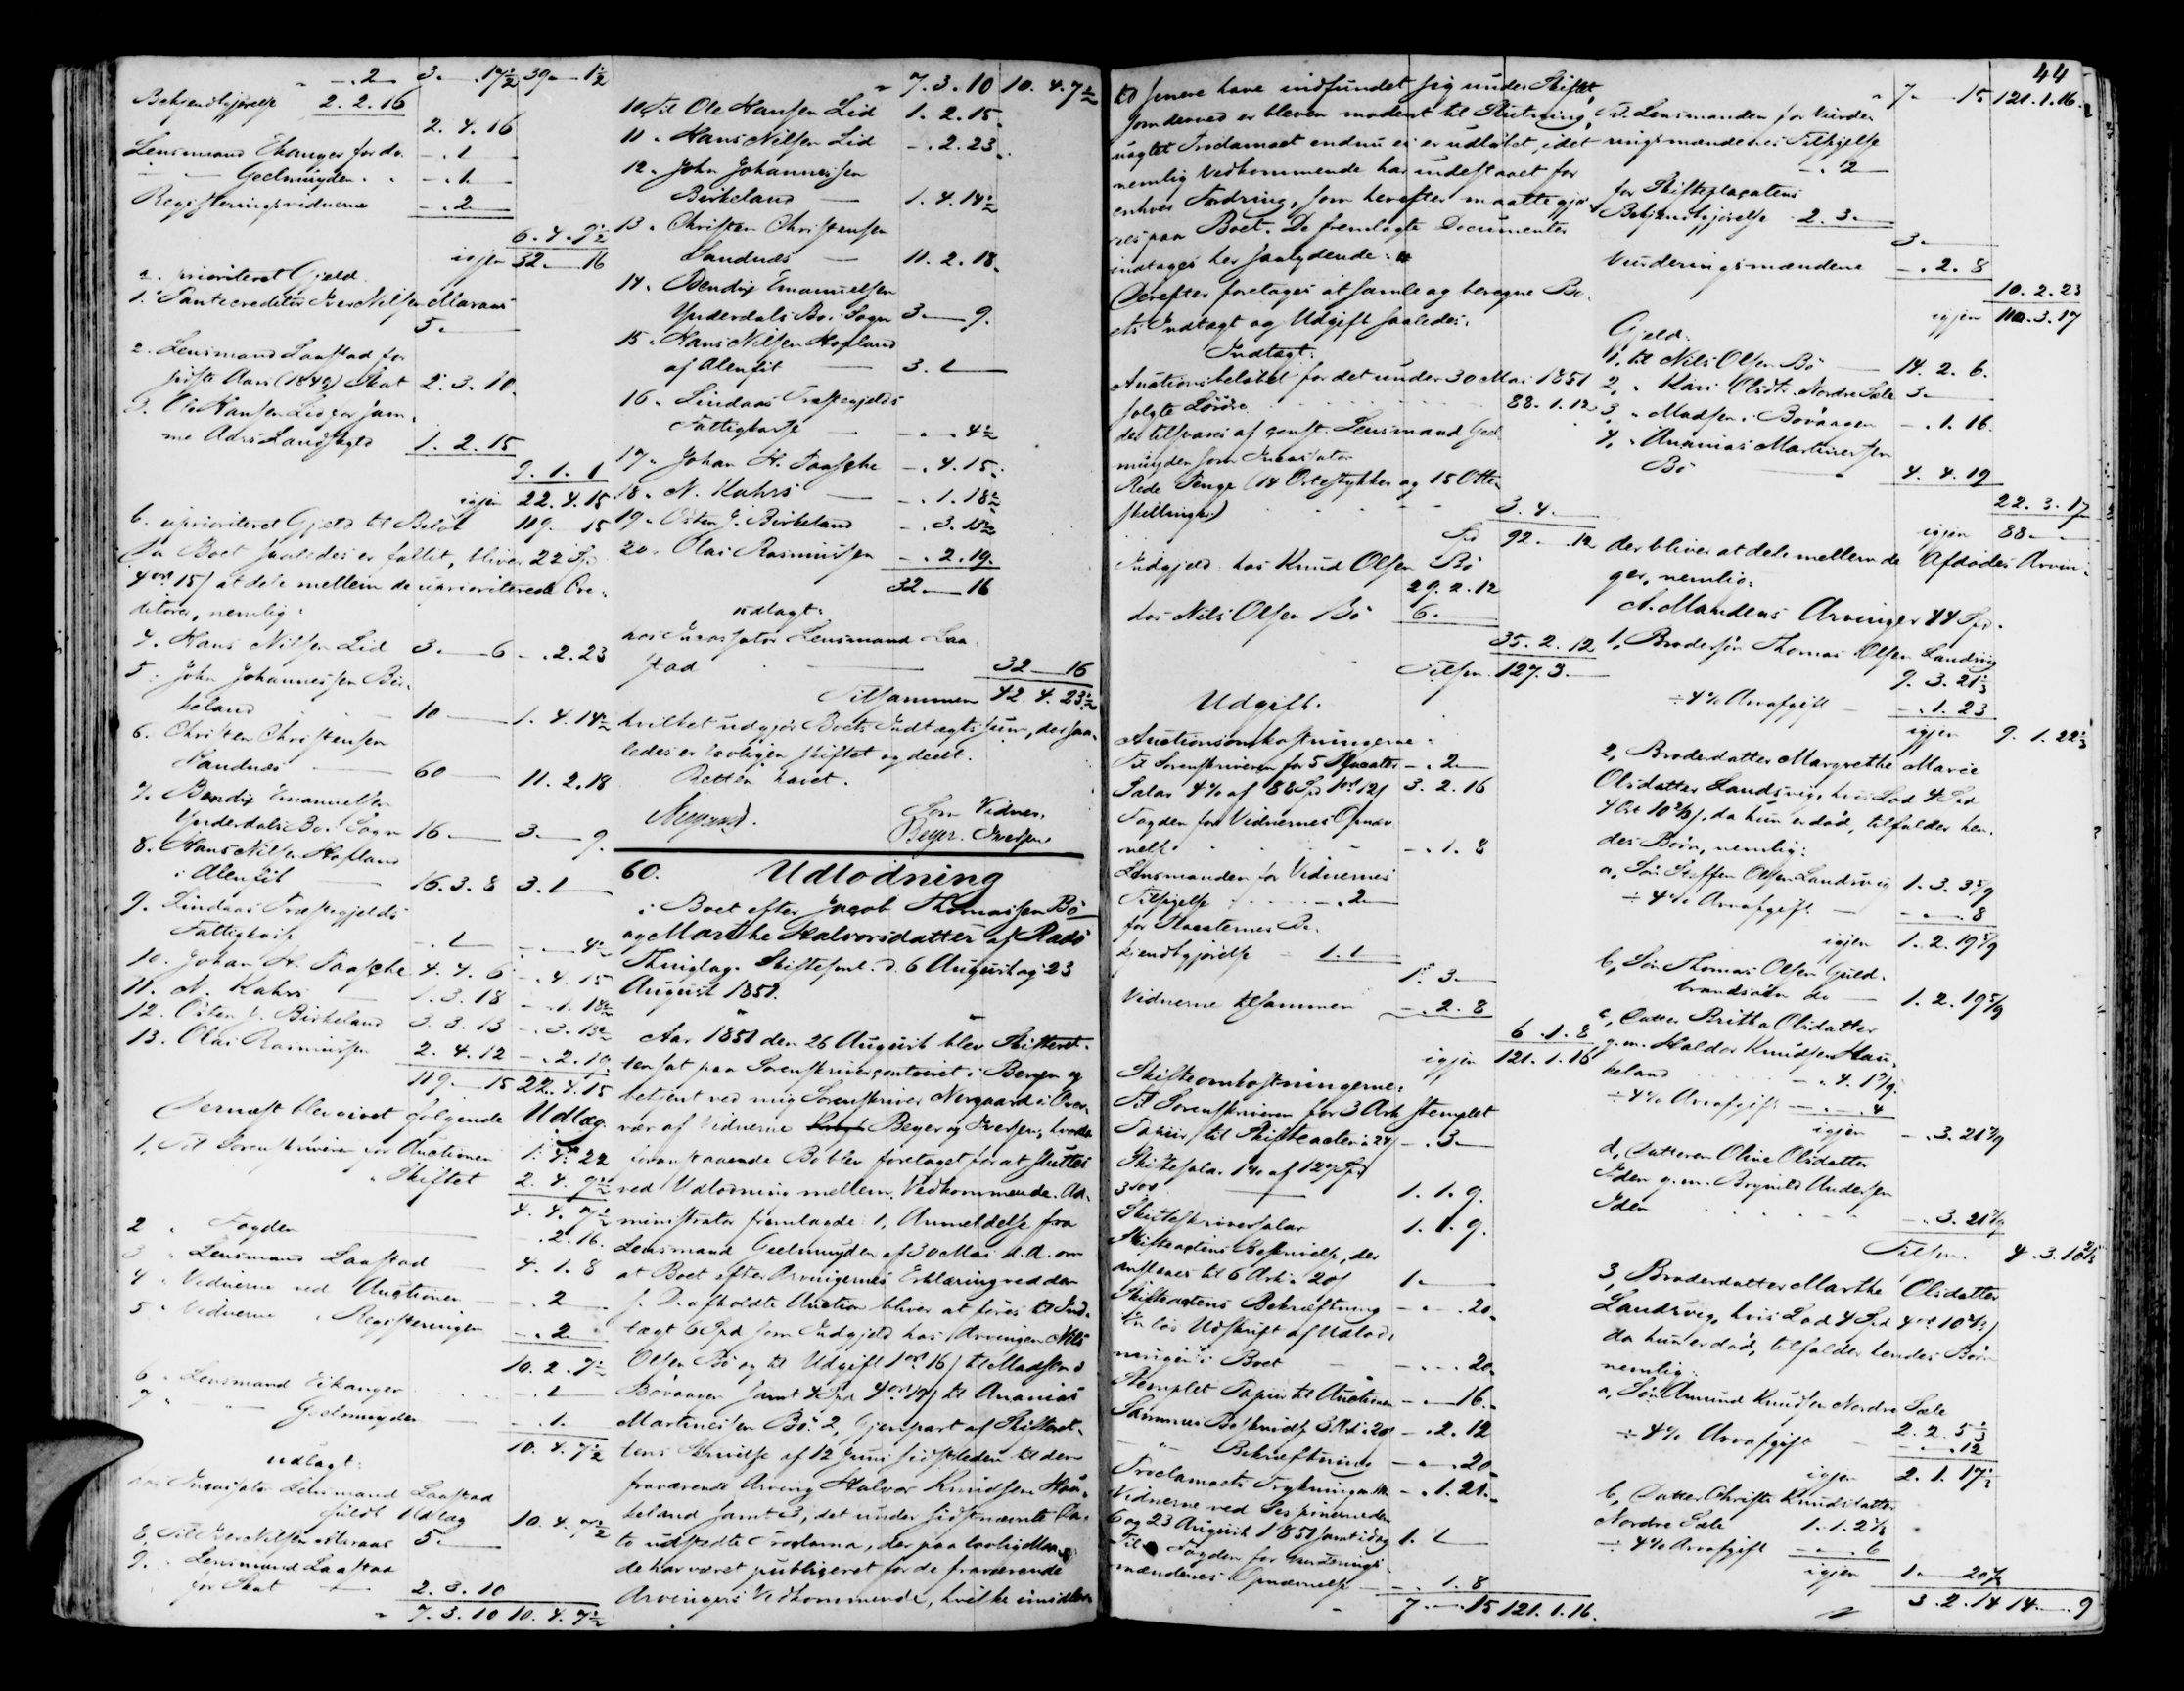 " -.2- 3-.17½ 39-1½
Bekjendtgjørelse 2.2.16
2.4.16
Lensmand Ekanger for do. -.1-
" - Geelmuyden " -.1-
Registeringsvidnerne -.2-
6.4.9½
igjen 32-16
a. prioriteret Gjeld.
1. Pantecreditor Iver Nilsen Maraas
5.-
2. Lensmand Laastad for
sidste Aars (1849) Skat 2.3.10.
3. Ole Hansen Lid for sam-
me Aars Landskyld 1.2.15
9.1.1
igjen 22.4.15
b. uprioriteret Gjeld til Beløb 119-15
Da Boet saaledes er fallit, bliver 22 Spd
4 ort 15 ſ at dele mellem de uprioriterede Cre-
ditorer, nemlig:
4. Hans Nilsen Lid 3-6 -.2.23
5. John Johannessen Bir-
keland 10- 1.4.14½
6. Christen Christensen
Sandnæs 60- 11.2.18
7. Bendix Emanuelsen
Ynderdals Bos. Sogn 16- 3-9.
8. Hans Nilsen Hopland
i Alenfit 16.3.8 3.1-
9. Lindaas Præstegjelds
Fattigkasse -.1- -.-.4½
10. Johan H. Paasche 4.4.6 -.4.15
11. N. Kahrs 1.3.18 -.1.18½
12. Osten J. Birkeland 3.3.13 -.3.13½
13. Olai Rasmussen 2.4.12 -.2.19.
119-15 22.4.15
Dernæst blev givet følgende Udlæg.
1, Til Sorenskriveren for Auctionen 1.4.22
" Skiftet 2.4.9½
4.4.7½
2 " Fogden .2.16.
3 " Lensmand Laastad 4.1.8
4 " Vidnerne ved Auctionen -.2-
5 " Vidnerne " Registeringen -.2-
10.2.7½
6 " Lensmand Eikanger -.1-
7 " - Geelmuyden -.1-
10.4.7½
udlagt:
hos Incassator Lensmand Laastad
fuldt Udlæg 10.4.7½
8, Til Iver Nilsen Maraas 5.-
9. " Lensmand Laastad
for Skat 2.3.10
" 7.3.10 10.4.7½
" 7.3.10 10.4.7½
10. Til Ole Hansen Lid 1.2.15.
11 " Hans Nilsen Lid -.2.23.
12 " John Johannessen
Birkeland - 1.4.14½
13 " Christen Christensen
Sandnæs - 11.2.18.
14. Bendix Emanuelsen
Ynderdals Bos. Sogn 3-9.
15 " Hans Nilsen Hopland
af Alenfit 3.1-
16 " Lindaas Præstegjelds
Fattigkasse - -.-.4½
17 " Johan H. Paasche -.4.15.
18 " N. Kahrs - -.1.18½
19 " Osten J. Birkeland -.3.13½
20 " Olai Rasmussen -.2.19.
32-16
udlagt:
hos Incassator Lensmand Laa-
stad 32-16
Tilsammen 42.4.23½
hvilket udgjør Boets Indtægts Sum, der saa-
ledes er lovligen skiftet og deelt.
Retten hævet.
Nergaard. Som Vidner,
Beyer. Iversen
60. Udlodning
i Boet efter Jacob Thomassen Bø
og Marthe Halvorsdatter af Radø
Thinglag. Skiftesml. d. 6 August og 23
August 1851.
Aar 1851 den 26 August blev Skifteret-
ten sat paa Sorenskrivercontoiret i Bergen og
betjent ved mig Sorenskriver Nergaard i Over-
vær af Vidnerne Beyer og Iversen, hvorda
foranstaaende Bo blev foretaget for at sluttes
ved Udlodning mellem Vedkommende. Ad-
ministrator fremlagde: 1, Anmeldelse fra
Lensmand Geelmuyden af 30 Mai d. A. om
at Boet efter Arvingernes Erklæring ved den
s. D. afholdte Auction bliver at føres til Ind-
tægt 6 Spd som Indgjeld hos Arvingen Nils
Olsen Bø og til Udgift 1 ort 16 ſ til Madsen i
Bovaagen samt 4 Spd 4 ort 19 ſ til Ananias
Martinessen Bø. 2, Gjenpart af Skifteret-
tens Skrivelse af 12 Juni sidstleden til den
fraværende Arving Halvor Knudsen Hau-
keland samt 3, det under sidstnævnte Da-
to udstedte Proclama, der paa lovlig Maa-
de har været publiceret for de fraværende
Arvingers Vedkommende, hvilke imidler-
44
tid senere have indfundet sig under Skiftet,
som derved er bleven modent til Slutning,
uagtet Proclamaet endnu ei er udløbet, idet
nemlig Vedkommende har indestaaet for
enhver Fordring, som herefter maatte gjø-
res paa Boet. De fremlagte Documenter
indtages her saalydende:
Derefter foretages at samle og beregne Bo-
ets Indtægt og Udgift saaledes:
Indtægt:
Auctionsbeløbet for det under 30 Mai 1851
solgte Løsøre 88.1.12
der tilsvares af const. Lensmand Geel-
muyden som Incassator
Rede Penge (14 Ortestykker og 15 Otte-
skillinger) 3.4.-
Spd 92-.12
Indgjeld: hos Knud Olsen Bø
29.2.12
hos Nils Olsen Bø 6.-
35.2.12
Tilsm. 127.3.-
Udgift.
Auctionsomkostningerne:
Til Sorenskriveren for 5 Placater -.2-
Salar 4% af 88 Spd 1 ort 12 ſ 3.2.16
Fogden for Vidnernes Opnæv-
nelse -.1.8
Lensmanden for Vidnernes
Tilsigelse -.2-
for Placaternes Be-
kjendtgjørelse 1.1-
1.3-
Vidnerne tilsammen -.2.8
6.1.8
igjen 121.1.16
Skifteomkostningerne:
Til Sorenskriveren for 3 Ark stemplet
Papiir til Skifteacten à 24 ſ -.3-
Skiftesalar 1% af 127 Spd
3 ort 1.1.9.
Skifteskriversalar 1.1.9.
Skifteactens Beskrivelse, der
ansees til 6 Ark à 20 ſ 1.-
Skifteactens Bekræftning -.-.20.
En løs Udskrift af Udlod-
ningen i Boet -.-.20.
Stemplet Papir til Auctionen -.-16.
Sammes Beskrivelse 3 Ark à 20 ſ -.2.12
- " - Bekræftning -.-.20.
Proclamaets Trykning m. m. -.1.21.
Vidnerne ved Sessionerne den
6 og 23 August 1851 samt idag 1.1-
Til Fogden for Vurderings-
mændenes Opnævnelse -.1.8
7-.15 121.1.16.
" 7-.15 121.1.16.
Til Lensmanden for Vurde-
ringsmændenes Tilsigelse
-.2
for Skifteplacatens
Bekjendtgjørelse 2.3-
3-
Vurderingsmændene -.2.8
10.2.23
igjen 110.3.17
Gjeld.
1, til Nils Olsen Bø 14.2.6.
2, " Kari Olsdtr. Nordre Sæle 3-
3 " Madsen i Bovaagen -.1.16.
4, " Ananias Martinessen
Bø 4.4.19
22.3.17
igjen 88-
der bliver at dele mellem de Afdødes Arvin-
ger, nemlig:
A. Mandens Arvinger 44 Spd.
1, Brodersøn Thomas Olsen Landsvig
9.3.21⅓
÷ 4% Arvafgift -.1.23
igjen 9.1.22⅓
2, Broderdatter Margrethe Marie
Olsdatter Landsvig, hvis Lod 4 Spd
4 Ort 10⅔ ſ, da hun er død, tilfalder hen-
des Børn, nemlig:
a, Søn Steffen Olsen Landsvig 1.3.3 5/9
÷ 4% Arvafgift -.-.8
igjen 1.2.19 5/9
b, Søn Thomas Olsen Guld-
brandsøen do 1.2.19 5/9
c, Datter Britha Olsdatter
g. m. Haldor Knudsen Hau-
keland -.4.1 7/9
÷ 4% Arvafgift -.-.4
igjen -.3.21 7/9
d, Datteren Oline Olsdatter
Iden g. m. Brynild Andersen
Iden -.3.21 7/9
Tilsm. 4.3.10⅔
3, Broderdatter Marthe Olsdatter
Landsvig, hvis Lod 4 Spd 4 ort 10⅔ ſ
da hun er død, tilfalder hendes Børn
nemlig:
a, Søn Amund Knudsen Nordre Sæle
2.2.5⅓
÷ 4% Arvafgift -.-.12
igjen 2.1.17⅓
b, Datter Christi Knudsdatter
Nordre Sæle 1.1.2⅔
÷ 4% Arvafgift -.-.6
igjen 1-20⅔
3.2.14 14-.9